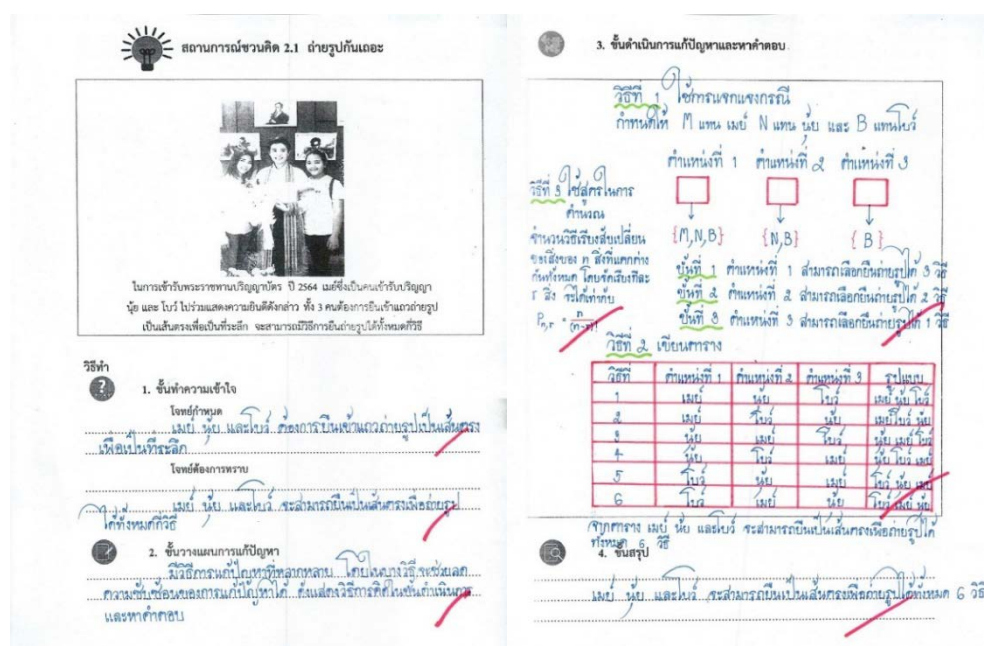 สถานการณ์ชวนคิด 2.1 ถ่ายรูปกันเถอะ
ในการเข้ารับพระราชทานปริญญาบัตร ปี 2564 เมย์ซึ่งเป็นคนเข้ารับปริญญา
นุ้ย และ โบว์ ไปร่วมแสดงความยินดีดังกล่าว ทั้ง 3 คนต้องการยืนเข้าแถวถ่ายรูป
เป็นเส้นตรงเพื่อเป็นที่ระลึก จะสามารถมีวิธีการยืนถ่ายรูปได้ทั้งหมดกี่วิธี
วิธีทำ
1. ขั้นทำความเข้าใจ
โจทย์กำหนด
เมย์ นุ้ย และโบว์ ต้องการยืนเข้าแถวถ่ายรูปเป็นเส้นตรง
เพื่อเป็นที่ระลึก
โจทย์ต้องการทราบ
เมย์ นุ้ย และโบว์ จะสามารถยืนเป็นเส้นตรงเพื่อถ่ายรูป
ได้ทั้งหมดกี่วิธี
2. ขั้นวางแผนการแก้ปัญหา
มีวิธีการแก้ปัญหาที่หลากหลาย โดยในบางวิธีจะช่วยลด
ความซับซ้อนของการแก้ปัญหาได้ ดังแสดงวิธีการคิดในขั้นดำเนินการ
และหาคำตอบ
3. ขั้นดำเนินการแก้ปัญหาและหาคำตอบ
วิธีที่ 1 ใช้การแจกแจงกรณี
กำหนดให้ M แทน เมย์ N แทน นุ้ย และ B แทนโบว์
ตำแหน่งที่ 1 ตำแหน่งที่ 2 ตำแหน่งที่ 3
{M,N,B} {N,B} {B}
ขั้นที่ 1 ตำแหน่งที่ 1 สามารถเลือกยืนถ่ายรูปได้ 3 วิธี
ขั้นที่ 2 ตำแหน่งที่ 2 สามารถเลือกยืนถ่ายรูปได้ 2 วิธี
ขั้นที่ 3 ตำแหน่งที่ 3 สามารถเลือกยืนถ่ายรูปได้ 1 วิธี
วิธีที่ 3 ใช้สูตรในการ
คำนวณ
จำนวนวิธีเรียงสับเปลี่ยน
ของสิ่งของ n สิ่งที่แตกต่าง
กันทั้งหมด โดยจัดเรียงทีละ
r สิ่ง จะได้เท่ากับ
วิธีที่ 2 เขียนตาราง
วิธีที่ ตำแหน่งที่ 1 ตำแหน่งที่ 2 ตำแหน่งที่ 3 รูปแบบ
1 เมย์ นุ้ย โบว์ เมย์ นุ้ย โบว์
2 เมย์ โบว์ นุ้ย เมย์ โบว์ นุ้ย
3 นุ้ย เมย์ โบว์ นุ้ย เมย์ โบว์
4 นุ้ย โบว์ เมย์ นุ้ย โบว์ เมย์
5 โบว์ นุ้ย เมย์ โบว์ นุ้ย เมย์
6 โบว์ เมย์ นุ้ย โบว์ เมย์ นุ้ย
จากตาราง เมย์ นุ้ย และโบว์ จะสามารถยืนเป็นเส้นตรงเพื่อถ่ายรูปได้
ทั้งหมด 6 วิธี
4. ขั้นสรุป
เมย์ นุ้ย และโบว์ จะสามารถยืนเป็นเส้นตรงเพื่อถ่ายรูปได้ทั้งหมด 6 วิธี